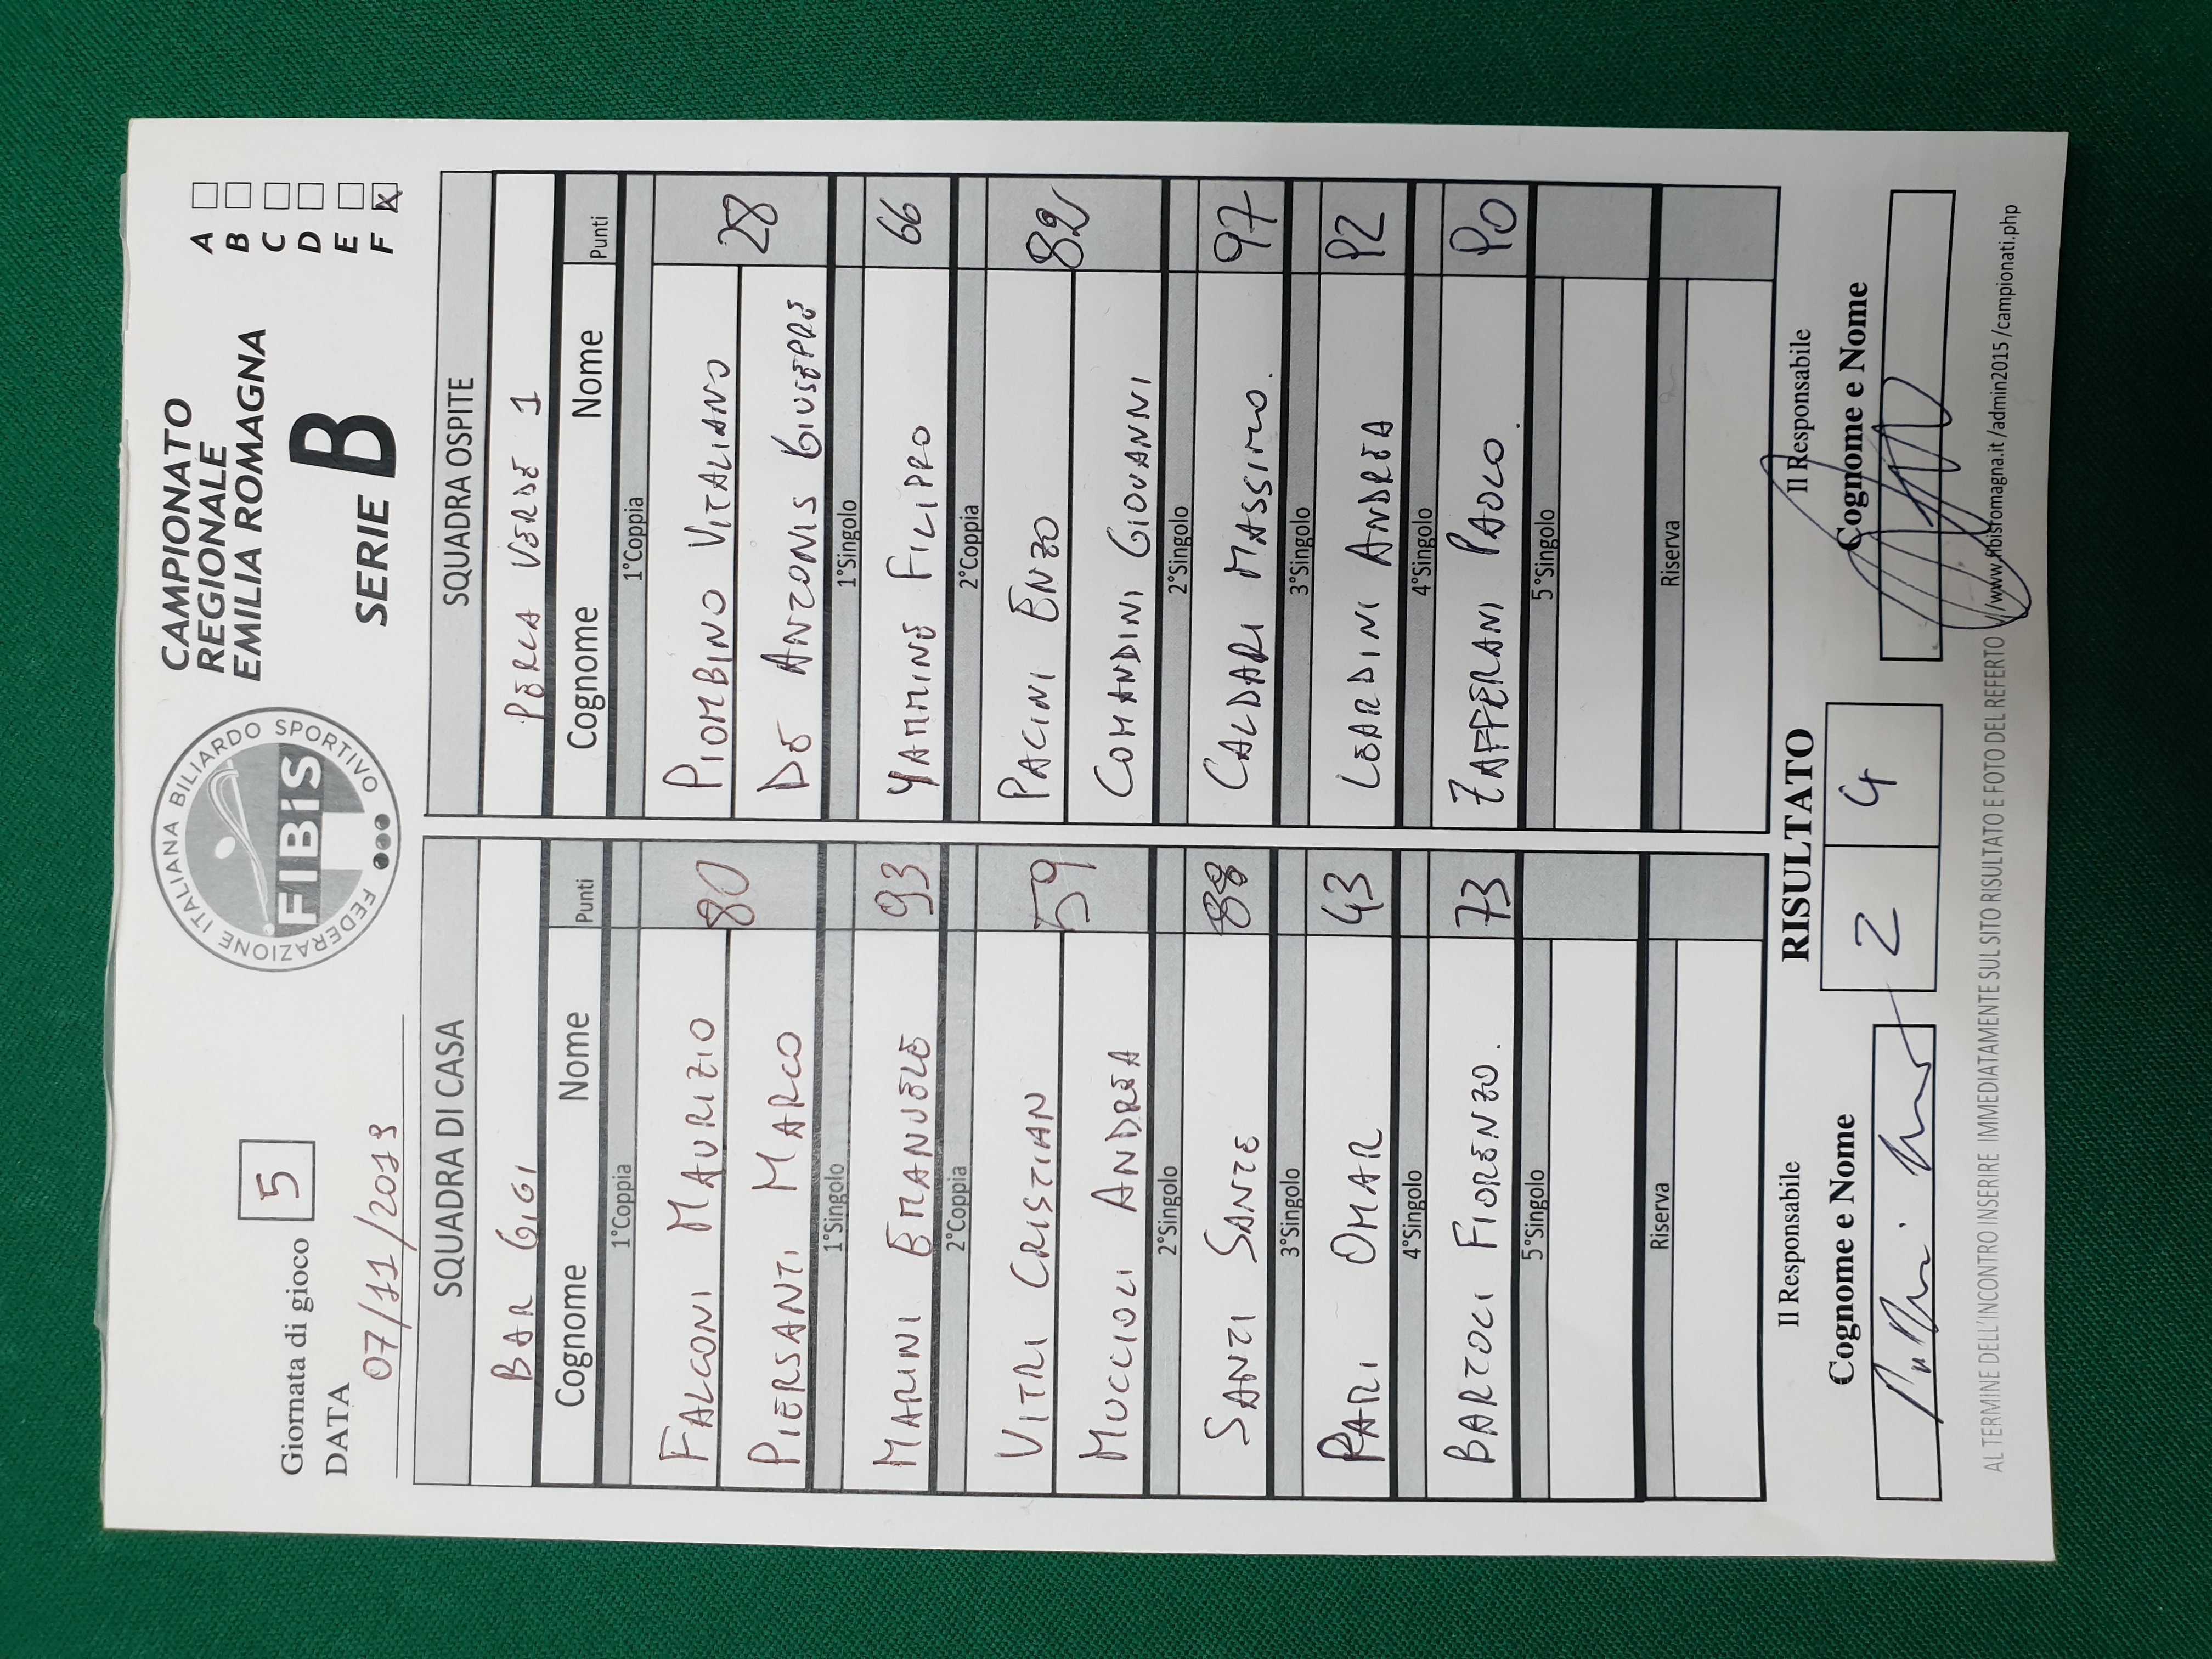 Giornata di gioco 5
DATA 07/11/2019
FEDERAZIONE ITALIANA BILIARDO SPORTIVO
FIBiS
CAMPIONATO
REGIONALE
EMILIA ROMAGNA
SERIE B
A
B
C
D
E
F X
SQUADRA DI CASA
BAR GIGI
Cognome Nome Punti
1°Coppia
FALCONI MAURIZIO 80
PIERSANTI MARCO
1°Singolo
MARINI EMANUELE 93
2°Coppia
VITRI CRISTIAN 59
MUCCIOLI ANDREA
2°Singolo
SANTI SANTE 88
3°Singolo
PARI OMAR 43
4°Singolo
BARTOLI FIORENZO. 73
5°Singolo
Riserva
SQUADRA OSPITE
PERLA VERDE 1
Cognome Nome Punti
1°Coppia
PIOMBINO VITALIANO 28
DE ANTONIS GIUSEPPE
1°Singolo
YAMMINE FILIPPO 66
2°Coppia
PACINI ENZO 82
COMANDINI GIOVANNI
2°Singolo
CALDARI MASSIMO. 97
3°Singolo
LEARDINI ANDREA 92
4°Singolo
ZAFFERANI PAOLO. 90
5°Singolo
Riserva
Il Responsabile
Cognome e Nome
RISULTATO
2 4
Il Responsabile
Cognome e Nome
AL TERMINE DELL'INCONTRO INSERIRE IMMEDIATAMENTE SUL SITO RISULTATO E FOTO DEL REFERTO //www.fibisromagna.it /admin2015 /campionati.php